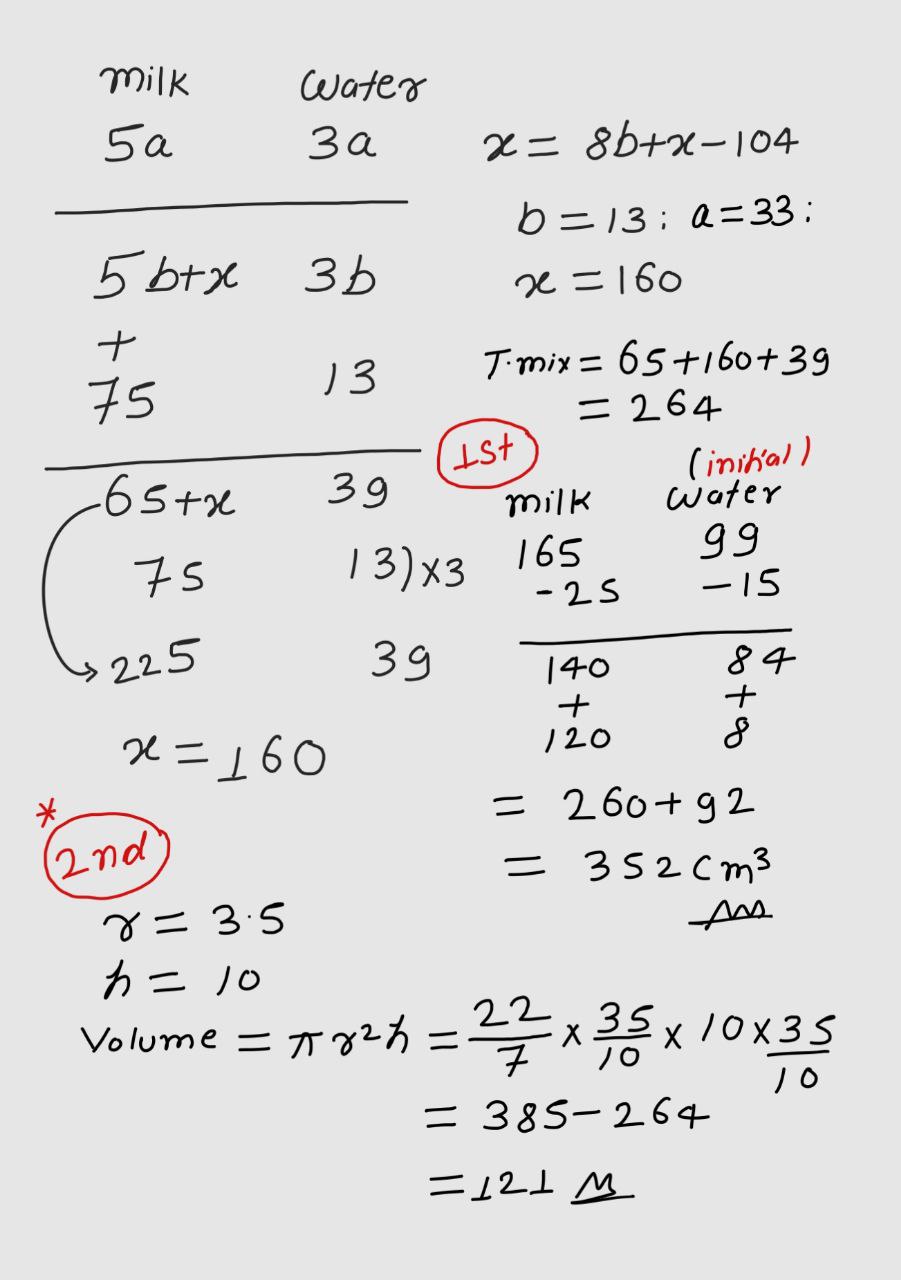 milk water
5a 3a
5b+x 3b
+
75 13
65+x 39
75 13)x3
225 39
x = 160
x = 8b+x-104
b = 13; a = 33;
x = 160
T.mix = 65+160+39
= 264
1st
(initial)
milk water
165 99
-25 -15
140 84
+ +
120 8
= 260+92
= 352 cm³
*
2nd
r = 3.5
h = 10
Volume = πr²h = 22/7 x 35/10 x 10 x 35/10
= 385-264
= 121